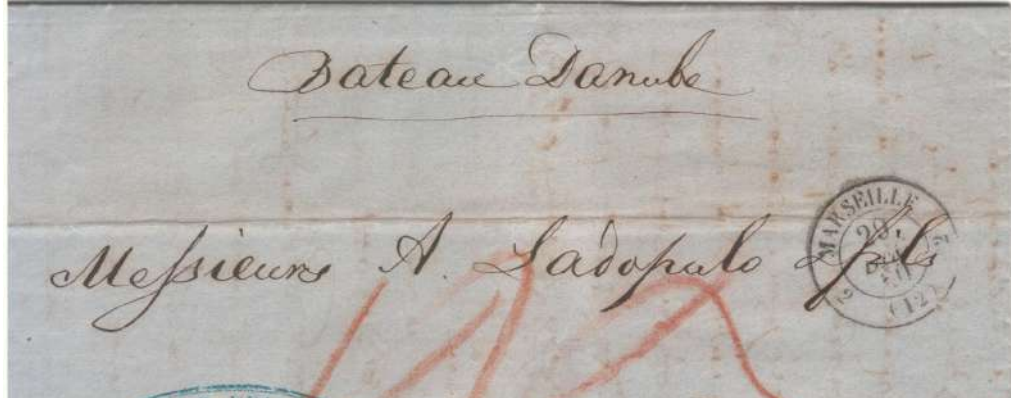 Bateau Danube
Messieurs A. Ladopulo fils
MARSEILLE
29
2 2
(12)